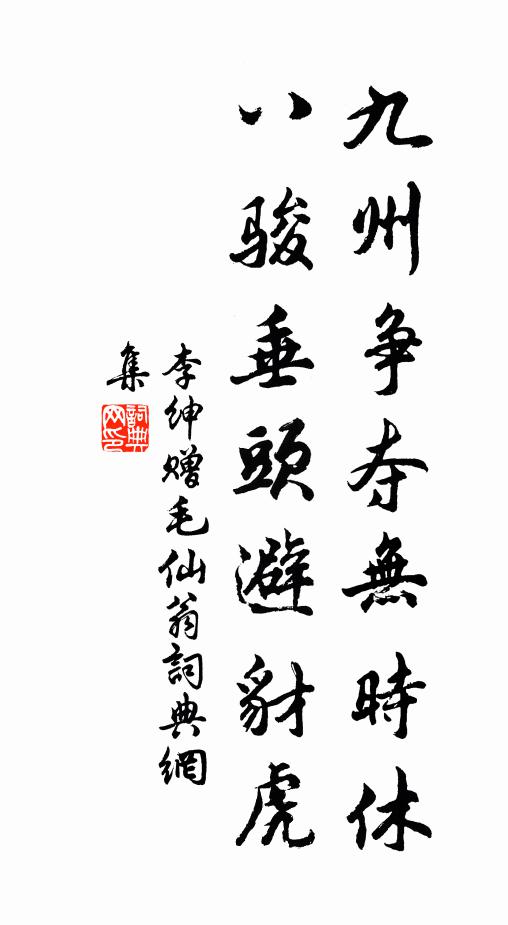 九州争夺無時休
八骏垂頭避豺虎
李绅赠毛仙翁詞典網
集
詞典網印